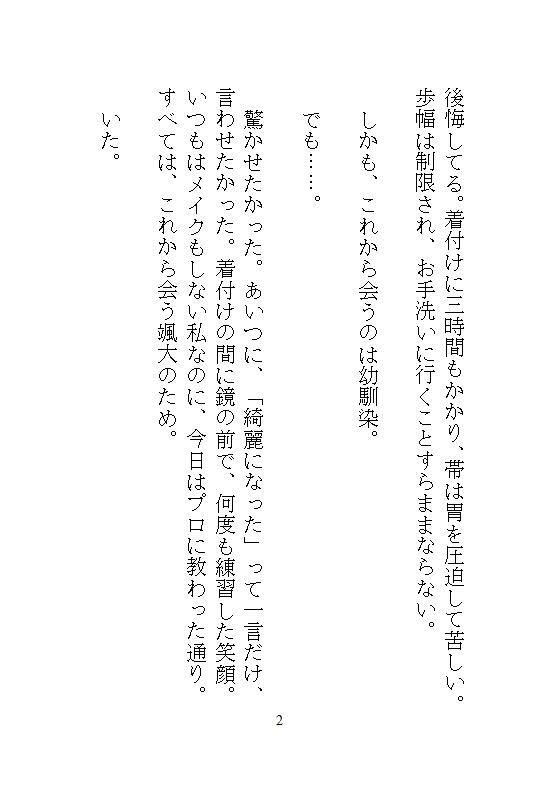 後悔してる。着付けに三時間もかかり、帯は胃を圧迫して苦しい。
歩幅は制限され、お手洗いに行くことすらままならない。
しかも、これから会うのは幼馴染。
でも……。
驚かせたかった。あいつに、「綺麗になった」って一言だけ、
言わせたかった。着付けの間に鏡の前で、何度も練習した笑顔。
いつもはメイクもしない私なのに、今日はプロに教わった通り。
すべては、これから会う颯大のため。
いた。
2